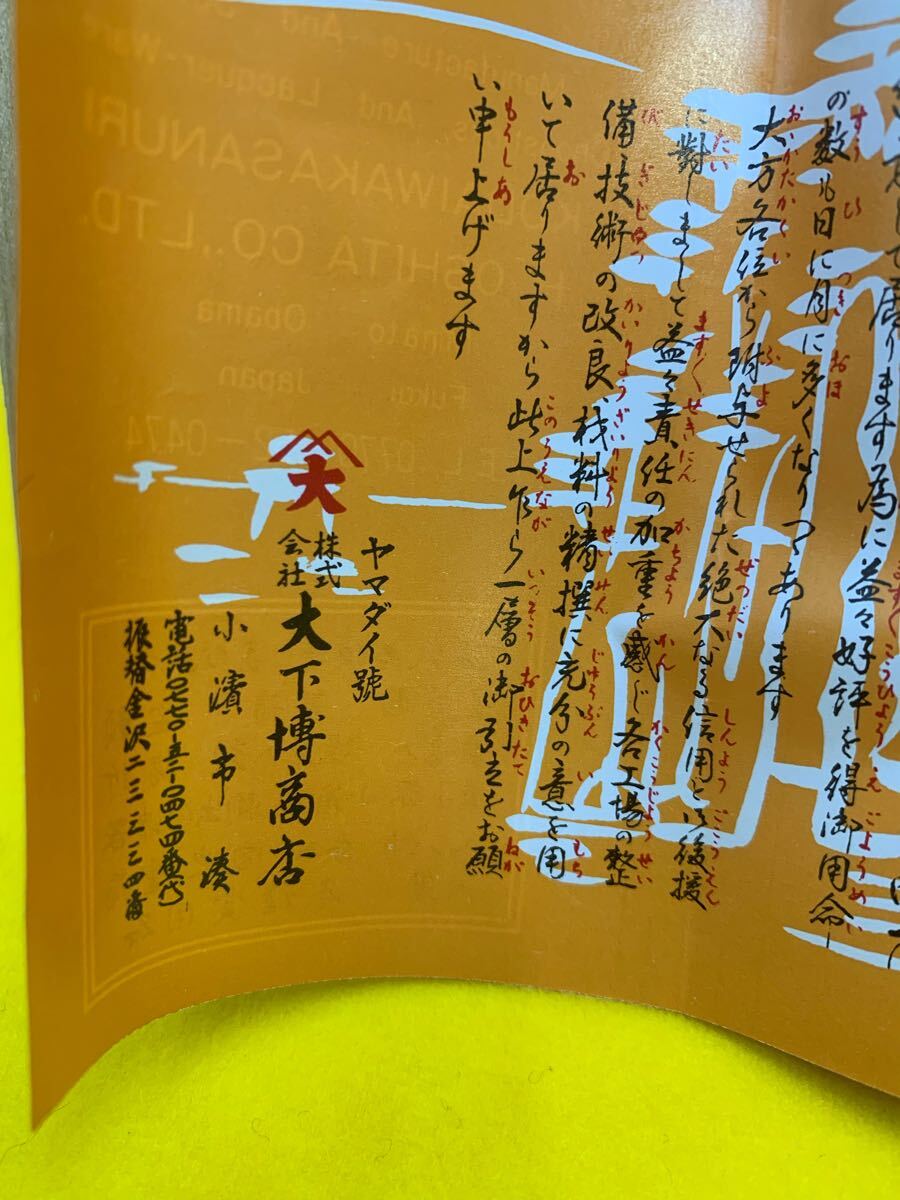 して居ります為に益々好評を得御用命
の数も日に月に多くなりつゝあります
大方各位から附与せられた絶大なる信用と御後援
に對しまして益々責任の加重を感じ各工場の整
備技術の改良、材料の精撰に充分の意を用
いて居りますから此上乍ら一層の御引立をお願
い申上げます
ヤマダイ號
大
株式会社 大下博商店
小濱市湊
電話〇七七〇-五二-〇四七四番代
振替金沢二三三三四番